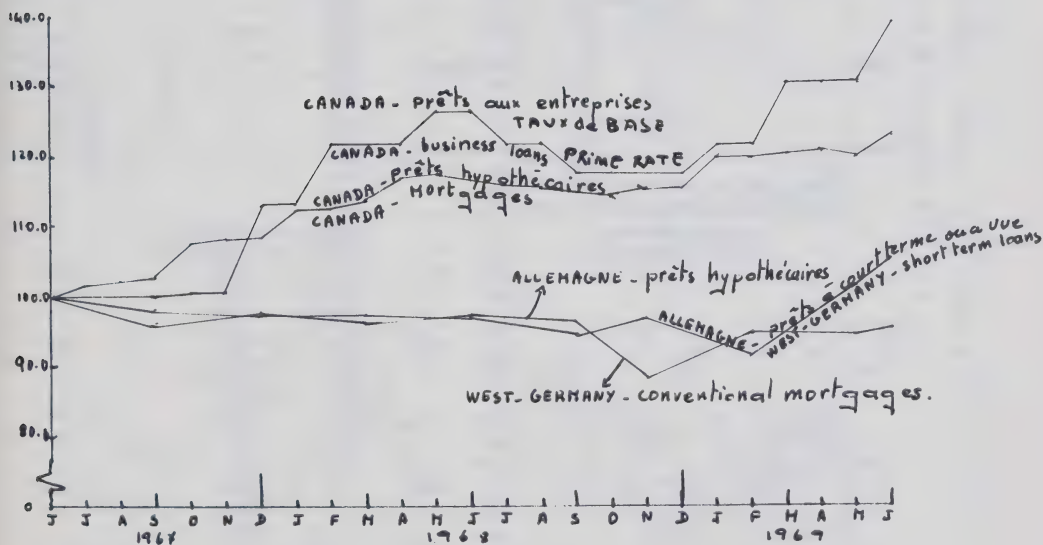 140.0
130.0
CANADA - prêts aux entreprises
TAUX de BASE
120.0
CANADA - business loans PRIME RATE
CANADA - prêts hypothécaires
CANADA - MORTGAGES
110.0
ALLEMAGNE - prêts hypothécaires
100.0
ALLEMAGNE - prêts à court terme ou à vue
WEST-GERMANY - short term loans
90.0
WEST-GERMANY - conventional mortgages.
80.0
0
J J A S O N D J F M A M J J A S O N D J F M A M J
1967 1968 1969